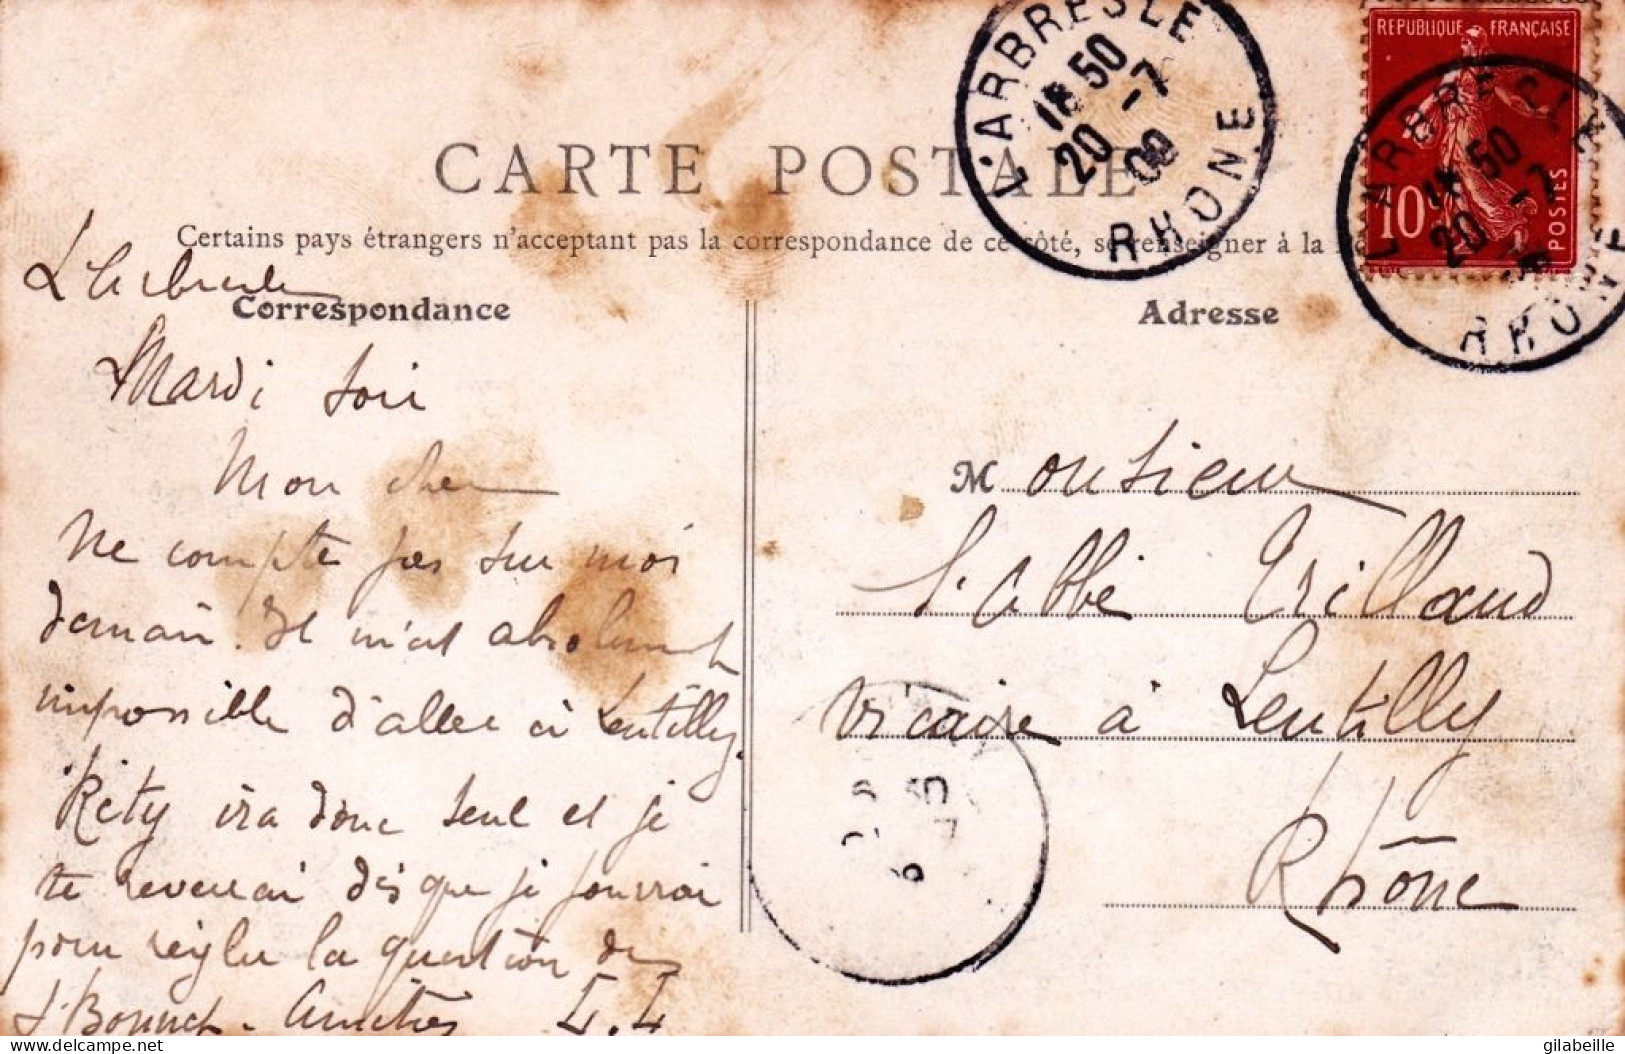 CARTE POSTALE
Certains pays étrangers n'acceptant pas la correspondance de ce côté, se renseigner à la
Correspondance
Adresse
L'Arbresle
Mardi soir
Mon cher
Ne compte pas sur moi
demain. Il m'est absolument
impossible d'aller à Lentilly.
Rity ira donc seul et je
te reverrai dès que je pourrai
pour régler la question de
Amitiés
Monsieur
l'Abbé Trillaud
vicaire à Lentilly
Rhône
L'ARBRESLE
18 50
20 -7
09
RHONE
REPUBLIQUE FRANÇAISE
10
POSTES
L'ARBRESLE
18 50
20 -7
RHONE
delcampe.net
gilabeille